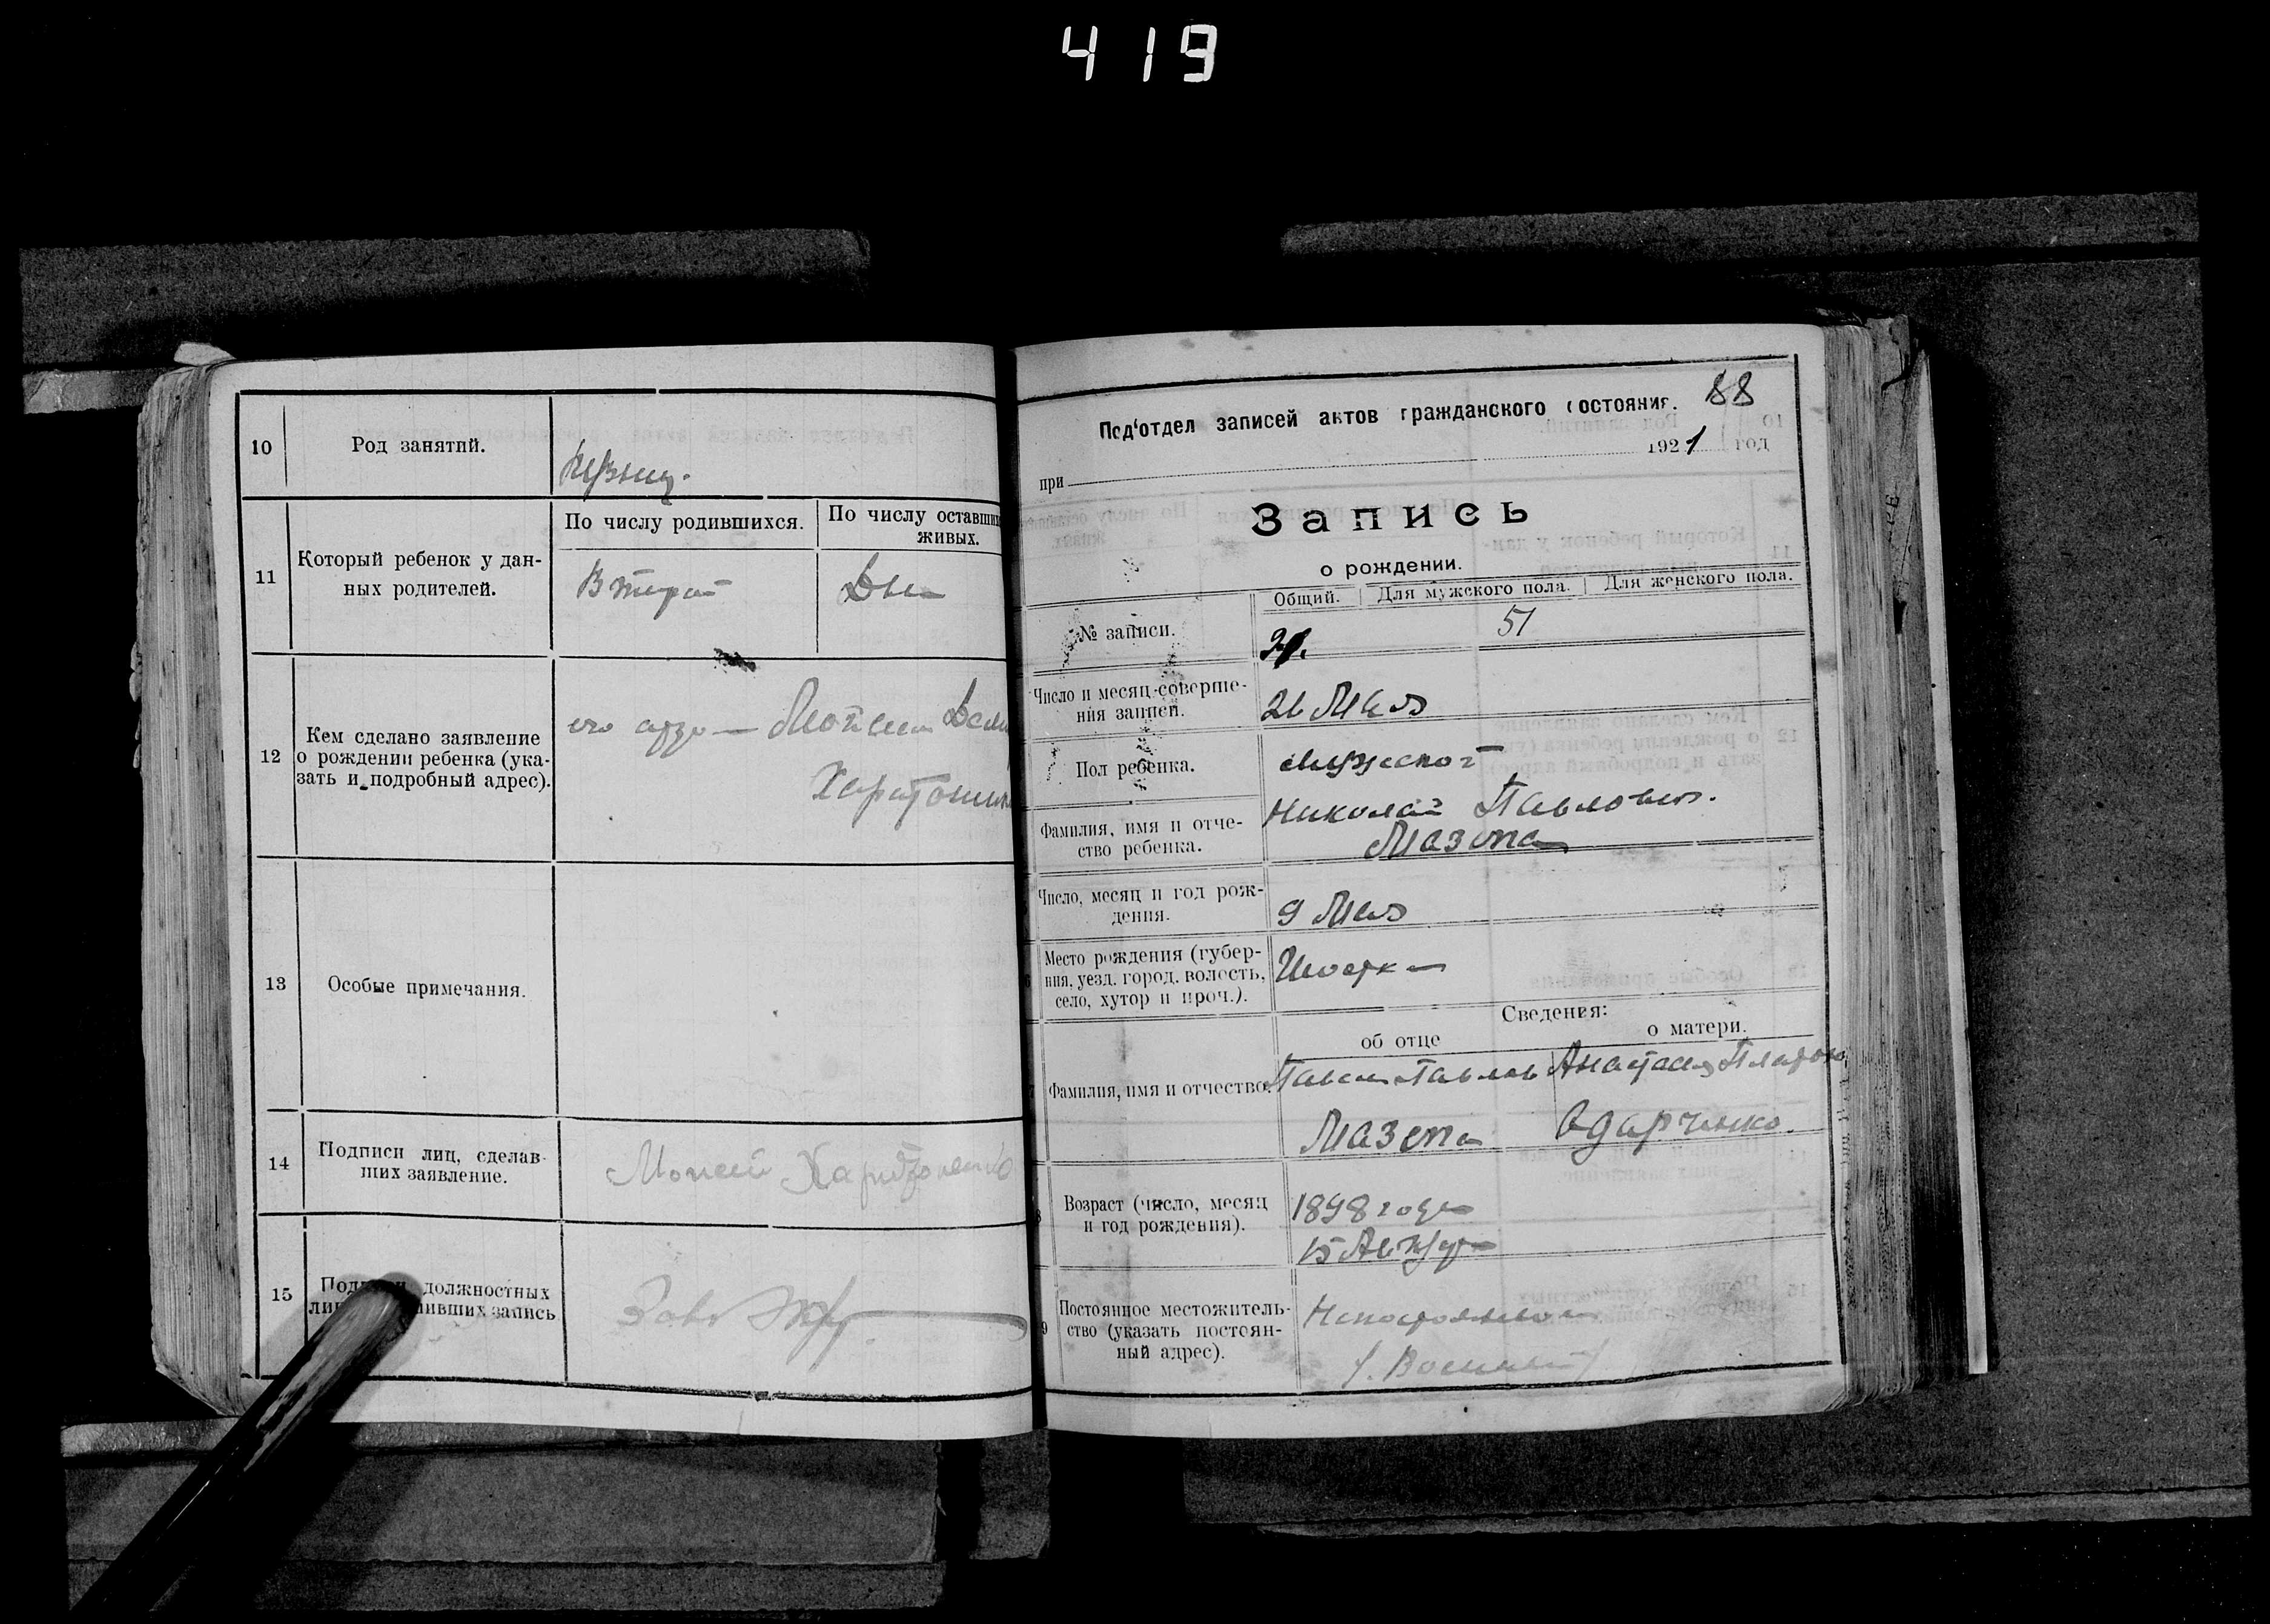 419
10
Род занятий.
11
Который ребенок у дан-
ных родителей.
По числу родившихся.
Второй
По числу оставши
живых.
Два
12
Кем сделано заявление
о рождении ребенка (ука-
зать и подробный адрес).
его отцо— Мойсеи
Харитонен
13
Особые примечания.
14
Подписи лиц, сделав-
ших заявление.
Моисей Харитоненко
15
должностных
запись
88
Под'отдел записей актов гражданского состояния.
при 1921 год
Запись
о рождении.
Общий. Для мужского пола. Для женского пола.
№ записи.
51
Число и месяц соверше-
ния записи.
26 Мая
Пол ребенка.
Мужской
Фамилия, имя и отче-
ство ребенка.
Николай Павлович.
Мазепа
Число, месяц и год рож-
дения.
9 Мая
Место рождения (губер-
ния, уезд, город, волость,
село, хутор и проч.).
Шостка
Сведения:
об отце о матери.
Фамилия, имя и отчество.
Павел Павлов
Мазепа
Анастасия Платоно
Одарченко.
8
Возраст (число, месяц
и год рождения).
1898 года
15 Августа
9
Постоянное местожитель-
ство (указать постоян-
ный адрес).
(. Военный)